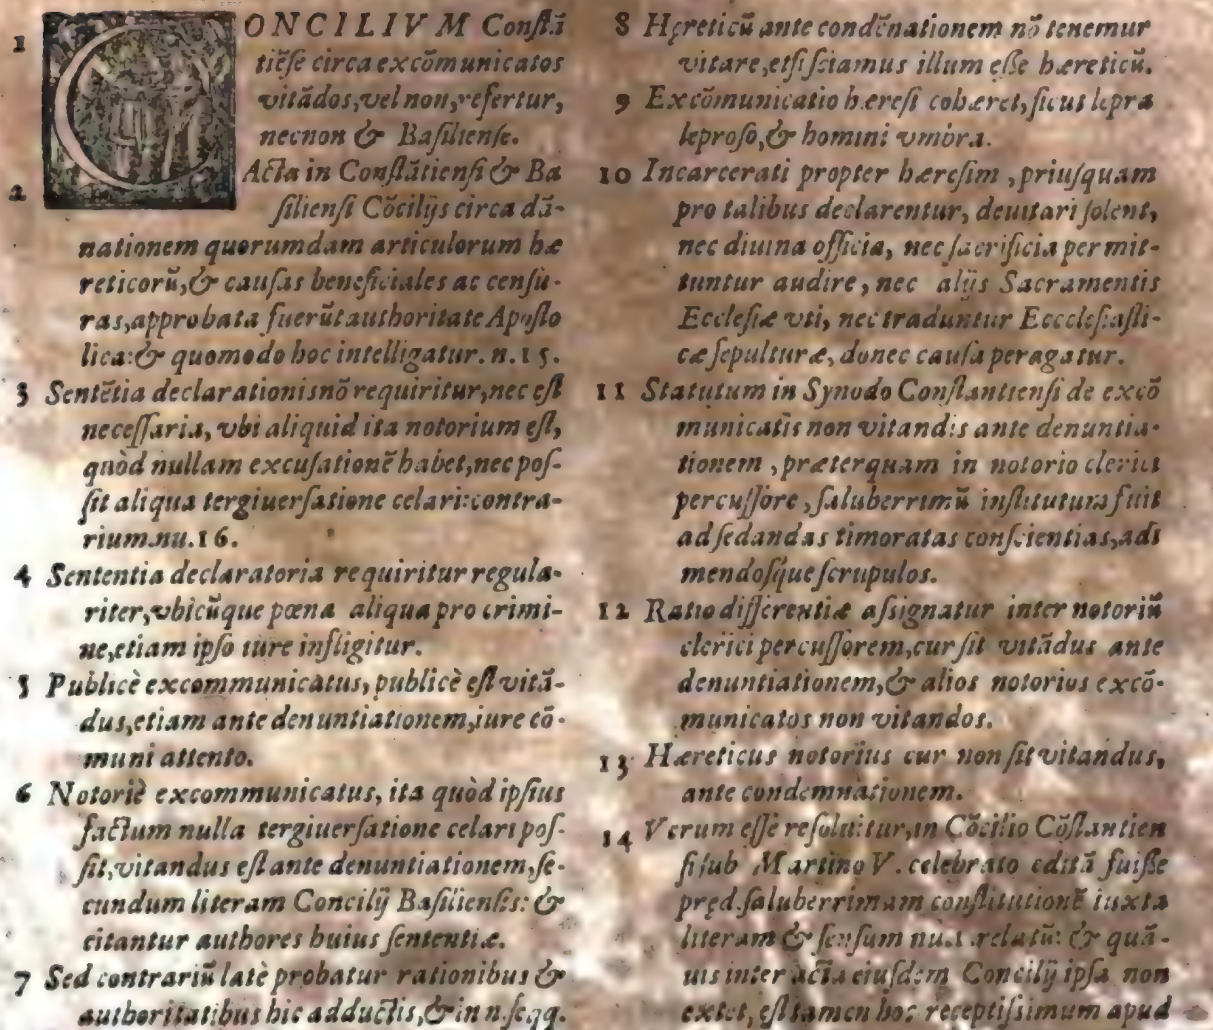 1 CONCILIVM Constā
tiēse circa excōmunicatos
vitādos, vel non, refertur,
necnon & Basiliense.
2 Acta in Constātiensi & Ba
siliensi Cōcilijs circa dā-
nationem quorumdam articulorum hæ
reticorū, & causas beneficiales ac censu-
ras, approbata fuerūt authoritate Aposto
lica: & quomodo hoc intelligatur. n.15.
3 Sentētia declarationis nō requiritur, nec est
necessaria, vbi aliquid ita notorium est,
quòd nullam excusationē habet, nec pos-
sit aliqua tergiuersatione celari: contra-
rium. nu.16.
4 Sententia declaratoria requiritur regula-
riter, vbicūque pœna aliqua pro crimi-
ne, etiam ipso iure infligitur.
5 Publicè excommunicatus, publicè est vitā-
dus, etiam ante denuntiationem, iure cō-
muni attento.
6 Notoriè excommunicatus, ita quòd ipsius
factum nulla tergiuersatione celari pos-
sit, vitandus est ante denuntiationem, se-
cundum literam Concilij Basiliensis: &
citantur authores huius sententiæ.
7 Sed contrariū latè probatur rationibus &
authoritatibus hic adductis, & in n. seqq.
8 Hęreticū ante condēnationem nō tenemur
vitare, etsi sciamus illum esse hæreticū.
9 Excōmunicatio hæresi cohæret, sicut lepra
leproso, & homini vmbra.
10 Incarcerati propter hæresim, priusquam
pro talibus declarentur, deuitari solent,
nec diuina officia, nec sacrificia permit-
tuntur audire, nec alijs Sacramentis
Ecclesiæ vti, nec traduntur Eccclesiasti-
cæ sepulturæ, donec causa peragatur.
11 Statutum in Synodo Constantiensi de excō
municatis non vitandis ante denuntia-
tionem, præterquam in notorio clerici
percussore, saluberrimū institutum fuit
ad sedandas timoratas conscientias, adi
mendosque scrupulos.
12 Ratio differentiæ assignatur inter notoriū
clerici percussorem, cur sit vitādus ante
denuntiationem, & alios notorios excō-
municatos non vitandos.
13 Hæreticus notorius cur non sit vitandus,
ante condemnationem.
14 Verum esse resoluitur, in Cōcilio Cōstantien
si sub Martino V. celebrato editā fuisse
pręd. saluberrimam constitutionē iuxta
literam & sensum nu.1. relatū: & quā-
uis inter acta eiusdem Concilij ipsa non
extet, est tamen hoc receptissimum apud